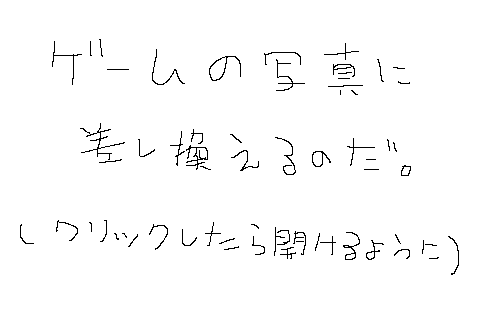 ゲームの写真に
差し換えるのだ。
(クリックしたら開けるように)